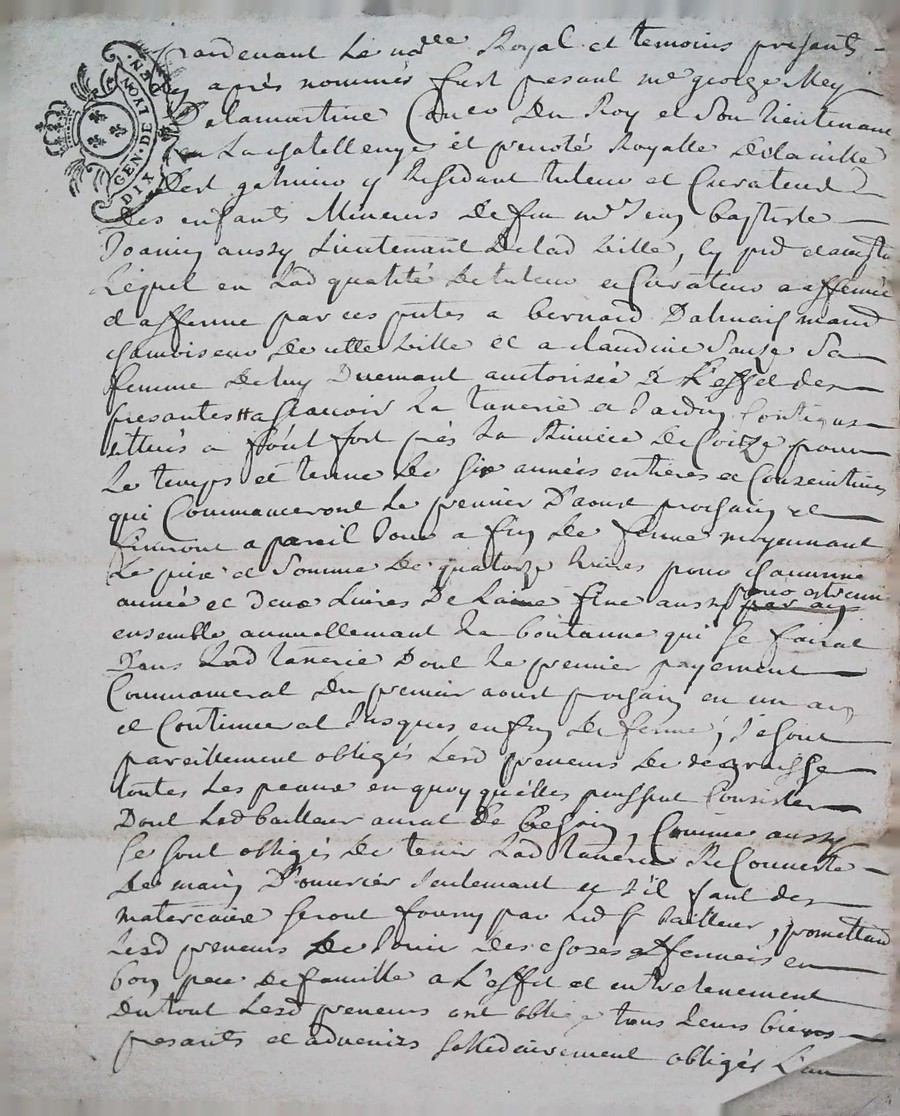 GEN. DE LYON DIX DEN.
Pardevant Le no.re Royal et temoins presants
cy après nommés fust pesant me george Mey
Delamartine Con.er Du Roy et Son Lieutenant
en La chatellenye et prevoté Royalle delaville
de st galmier y Residant tuteur et Curateur
Des enfants Mineurs De feu mr Jean baptiste
Joanin aussy Lieutenant delad ville,
Lequel en Lad qualité De tuteur et Curateur a affermé
et afferme par ces pntes a bernard Dalmais mard
chamoiseur De cette ville et a claudine Sauze Sa
femme De luy Duemant authorisée a L'effet des
presantes a scavoir La tanerie et Jardin Contigus
situés a font fort près La Riviere De Coize pour
Le temps et terme De six années entieres et Consecutives
qui Commanceront Le premier D'aoust prochain et
finiront a pareil Jour a fin de ferme moyennant
Le prix et Somme De quatorze Livres pour chacunne
année et deux Livres De Laine fine aussy
ensemble annuellemant La qui Se fairat
Dans Lad tanerie Dont Le premier payement
Commancerat Du premier aoust prochain en un an
et Continuerat Jusques en fin De ferme; Se sont
pareillement obligés Lesd preneurs De degraisse
toutes Les peaux en quoy qu'elles puissent Consister
Dont Led bailleur aurat De besoin, Comme aussy
Se sont obligés De tenir Lad tanerie Recouverte
De main D'ouvrier Seulemant et s'il faut des
matereaux Seront fourny par Led Sr bailleur, promettant
Lesd preneurs De Jouir Des choses affermées en
bon pere De famille a L'effet et entretenement
Du tout Lesd preneurs ont oblige tous Leurs biens
presants et advenirs Sollidairement obligés L'un